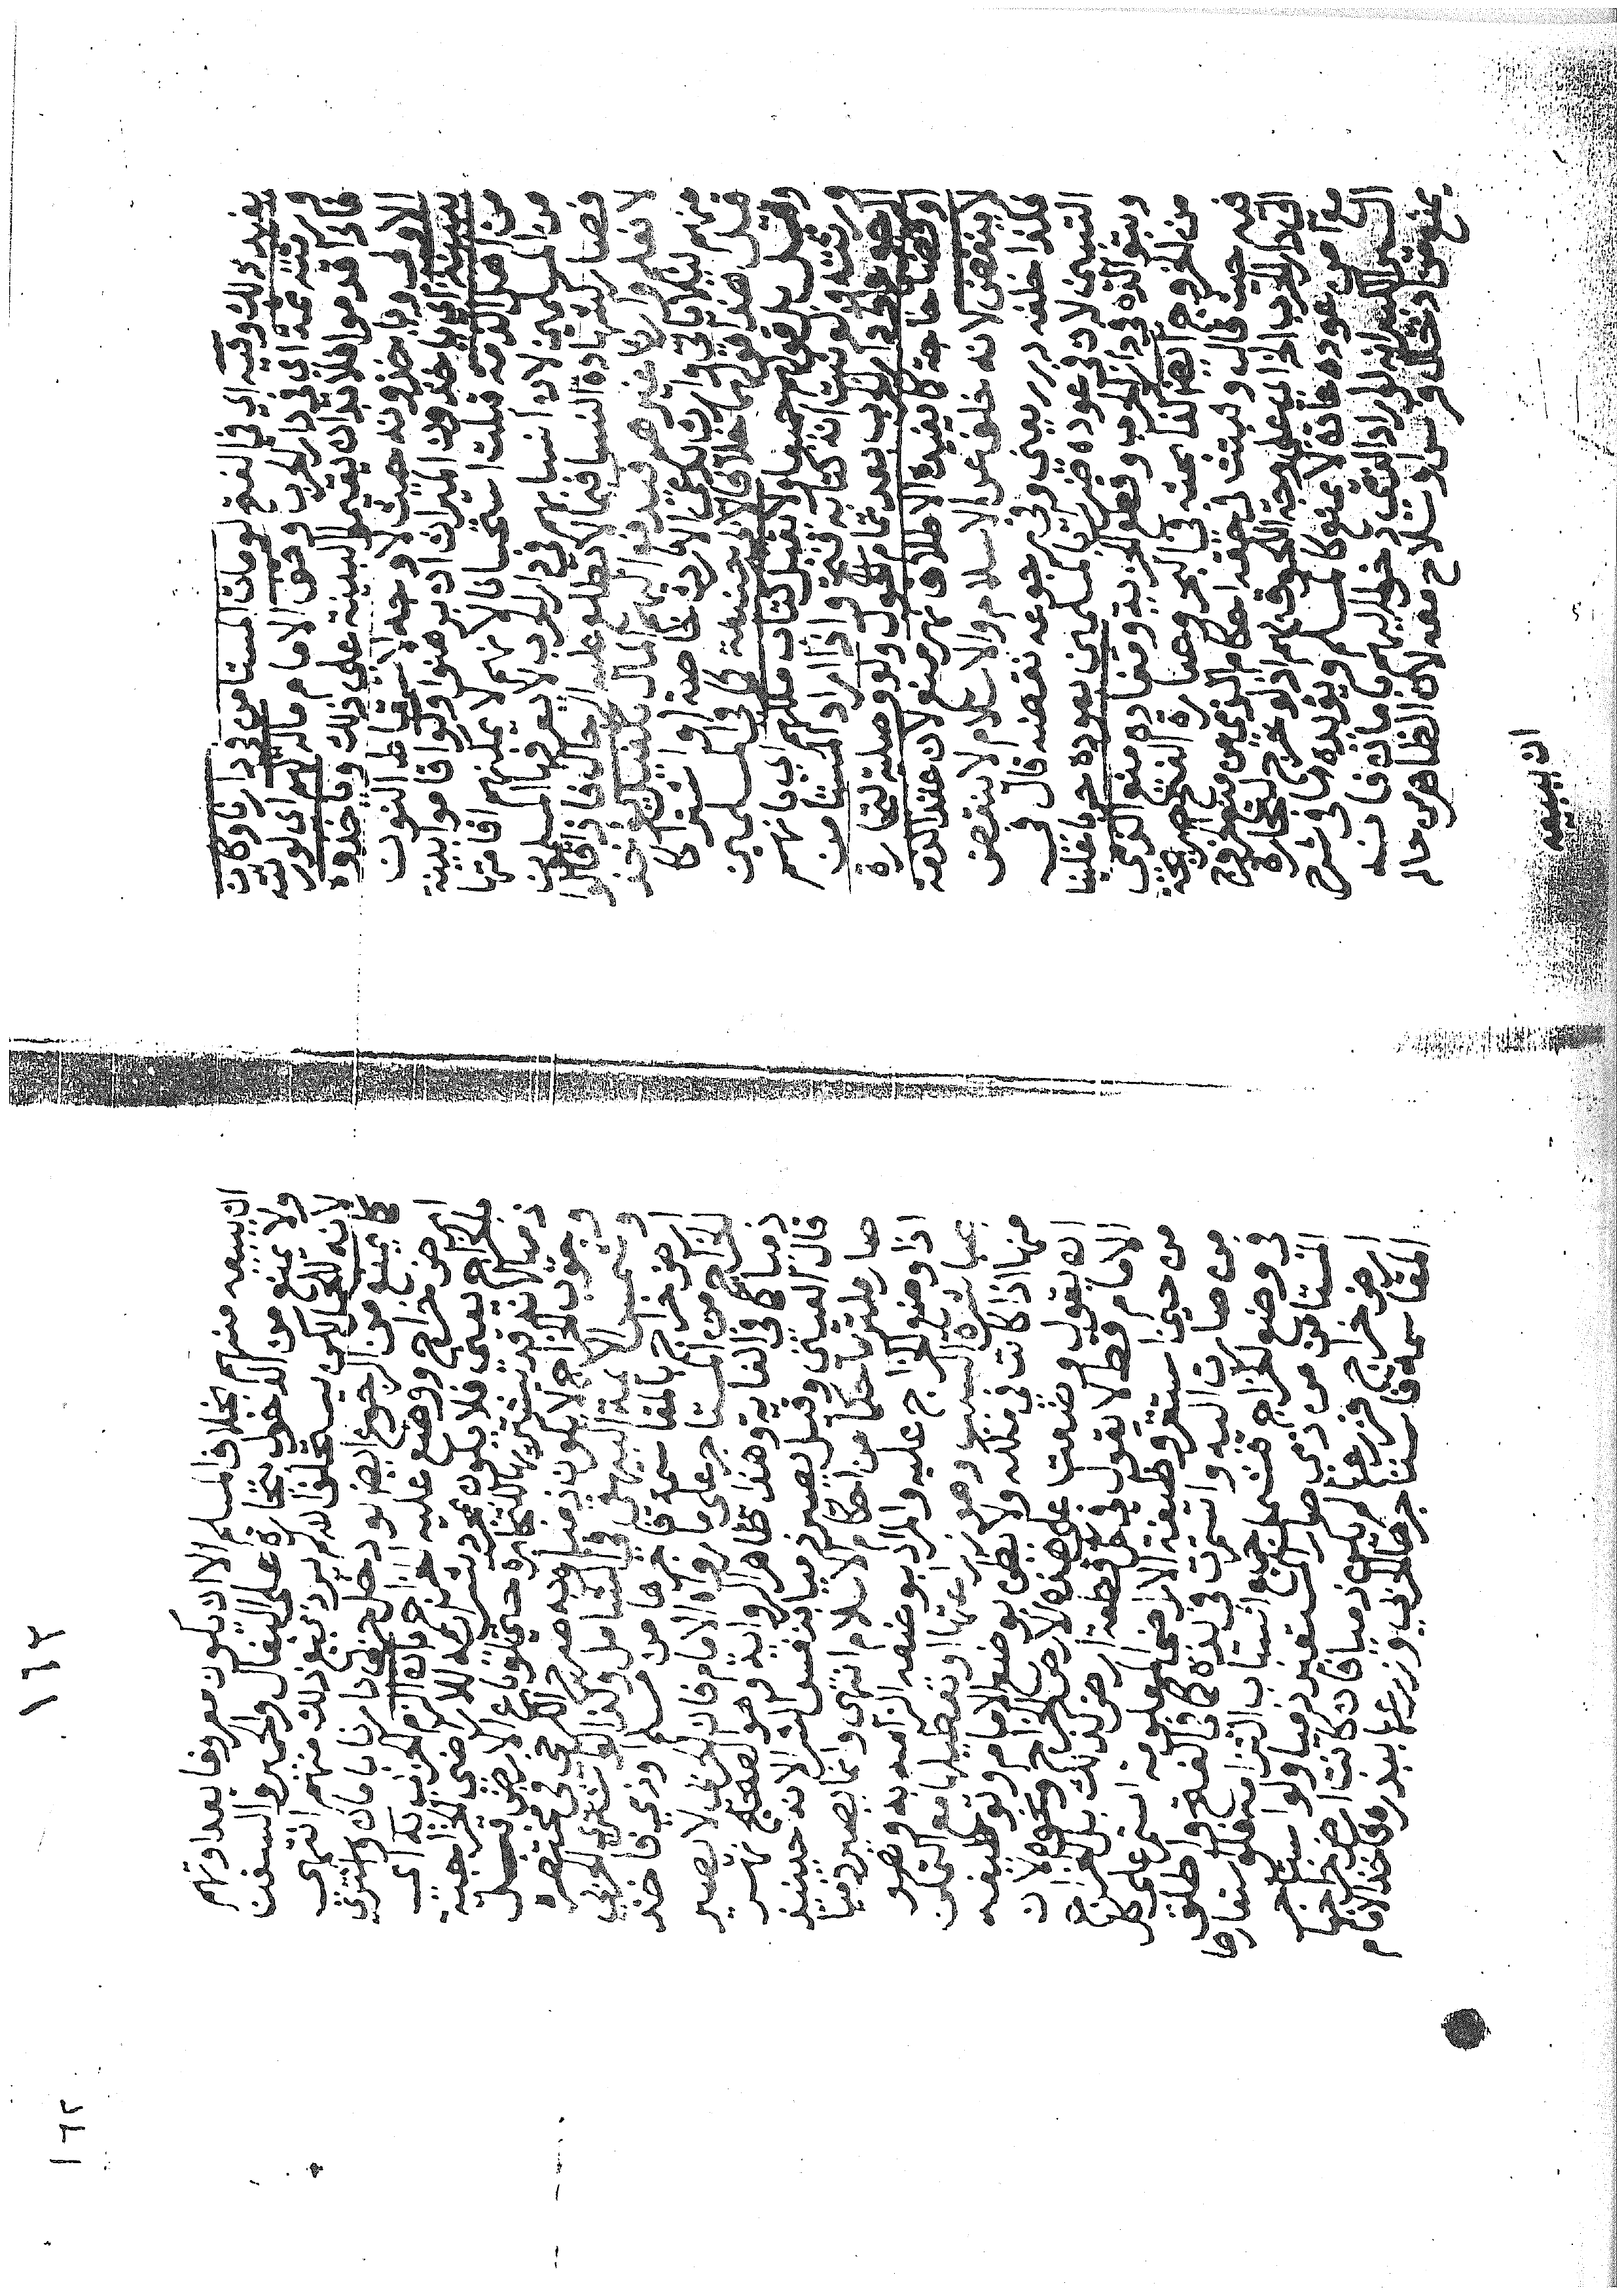 يفيد ذلك وفيه اي في الفتح لو مات المستامن في دارنا وكان
ورثته ثمة اي في دار الحرب وقف الامام ماله لهم اي لورثته
فاذا قدموا فلا بد ان يقيموا البينة على ذلك وياخذوه
الاولى وياخذونه حيث لا وجه لاسقاط النون
ببينة اي ياخذون الميراث ان برهنوا ولو اقاموا بينة
من اهل الذمة قبلت استحسانا لانهم لا يمكنهم اقامتها
من المسلمين لان انسابهم في دار الحرب لا يعرفها المسلمون
فصار كشهادة النسا فيما لا يطلع عليه الرجال فاذا قالوا
لا نعلم وارثا غيرهم دفع اليهم المال بكفيل يوخذ
منهم لما ياتي وارث يدعي الارث خاصة او اشتراكا
قيل هذا قولهما خلافا لابي حنيفة كما في المسلمين
وقيل بل قولهم جميعا ولا يقبل كتاب ملكهم اي بانهم
ورثته ولو ثبت انه كتابه فتح واذا اراد المستامن
الرجوع الى دار الحرب بعد تمام الحول ولو وصلية لتجارة
وقضا حاجة كما يفيده الاطلاق نهر منع لان عقد الذمة
لا ينقض لانه خلف عن الاسلام والاسلام لا ينتقض
فكذا خلفه درر يعني وفي رجوعه نقضه قال في
التبيين لان في عوده ضررا بالمسلمين بعوده حربا علينا
وبتوالده في دار الحرب وقطع الجزية ومفاده منع الذمي
من الخروج ايضا كما بحثه في البحر وعبارة الفتح صريحة
فيه حيث قال وثبتت في حقه احكام الذمي من منع الخروج
الى دار الحرب الخ اي على وجه اللحوق بهم اذ لو خرج لتجارة
مع امن عوده عادة لا يمنع كالمسلم ويؤيده ما في شرح
السير الكبير انه لو اراد الذمي دخوله اليهم بامان فانه
يمنع متى ادخل فرسا او سلاح معه لان الظاهر من حاله
ان يبيعه
١٦٢
ان يبيعه منهم بخلاف المسلم الا ان يكون معروفا بعداوتهم
ولا يمنع من الدخول بتجارة على البغال والحمير والسفن
لانه للحمل لكن يستحلف انه لم يرد بيع ذلك منهم انتهى
كما يمنع من الرجوع ايضا لو دخل حربي دارنا بامان واشترى
ارض خراج ووضع عليه خراجها بان الزم الخراج به اي
بالخراج يعني فلا يكون بمجرد شرائه للاراضي الخراجية
ذميا لانه قد يشتريها للتجارة حتى لو باع الارض قبل
وجوب الخراج لا يكون ذميا وبه صرح الكرخي في مختصره
وشمس الائمة البيهقي في الشامل ولذا لو اشترى الحربي
ارض خراج بالمقاسمة فاجرها من مسلم او ذمي فاخذ
الخراج من المستاجر على ما رواه الامام فان الحربي لا يصير
ذميا كما في الغاية وهذا ظاهر الرواية وهو الصحيح نهر
قال العيني وقيل يصير ذميا بنفس الشرا لانه حينئذ
صار ملتزما حكما من احكام الاسلام انتهى وانما يصير ذميا
اذا وضع الخراج عليه والمراد بوضعه الزامه به وهو
بمباشرة السبب وهو زراعتها او تعطيلها مع التمكن
منها اذا كانت في ملكه ولا يظن بوضع الامام وتوظيفه
ان يقول وضعت على هذه الارض الخراج ونحوه لان
الامام قط لا يقول في كل قطعة ارض كذلك بل الخراج
من حين استقر وظيفة الاراضي المعلومة استمر على كل
من صارت اليه واستمرت في يده كما في الفتح واطلق
في وضع الخراج فشمل جميع اسباب التزامه فلو استعارها
المستامن من ذمي صار المستعير ذميا ولو استاجر
ارض خراج فزرعها لم يكن ذميا فان كانت ارض خراجها
المقاسمة فاستاجرها الحربي وزرعها ببذره فاخذ الامام
١٦٢